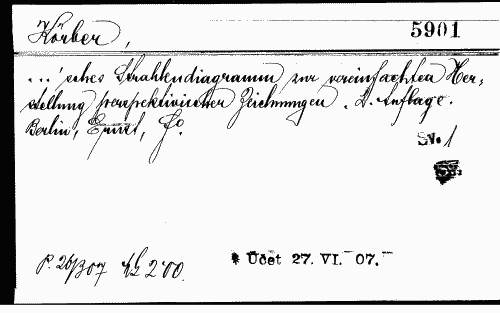 Körber,
5901
...'sches Strahlendiagramm zur vereinfachten Her-
stellung perspektivischer Zeichnungen. 2. Auflage.
Berlin, Ernst, Fo.
Sv. 1
P. 20/307 Kč 2·00.
* Účet 27. VI. 07.